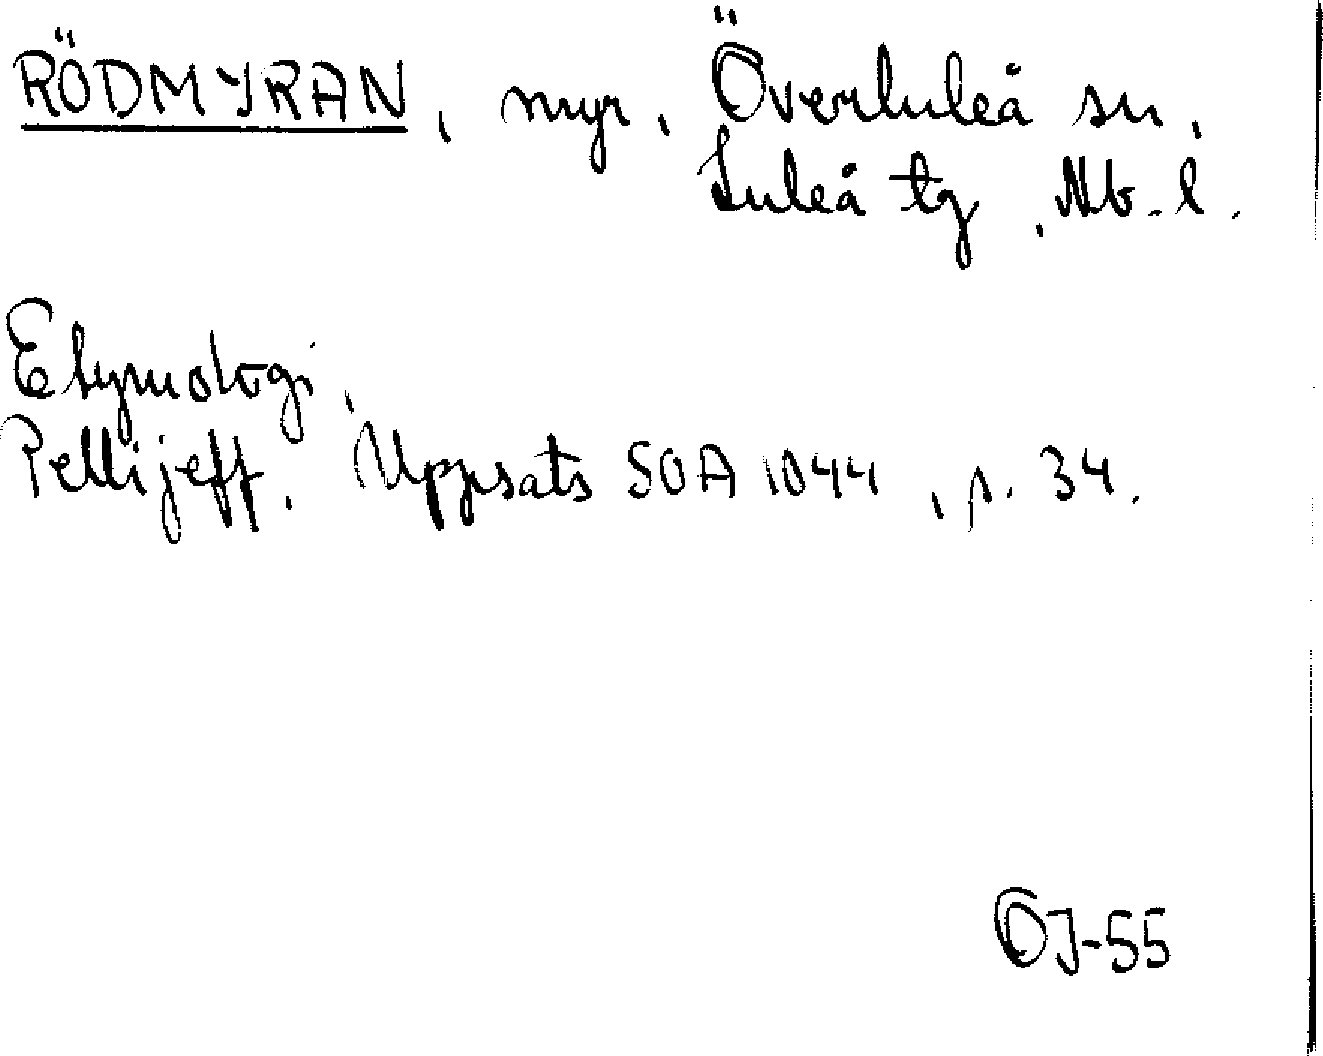 RÖDMYRAN, myr, Överluleå sn,
Luleå tg, Nb. l.
Etymologi,
Pellijeff, Uppsats SOA 1044, s. 34.
OJ-55